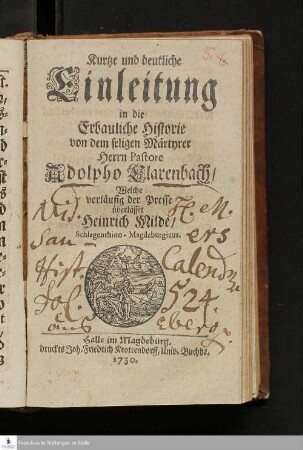 Kurtze und deutliche
Einleitung
in die
Erbauliche Historie
von dem seligen Märtyrer
Herrn Pastore
Adolpho Clarenbach/
Welche
vorläufig der Presse
überlässet
Heinrich Milde/
Schlagenthino - Magdeburgicus.
Vid. H. M.
Hist. Calendar
fol. 524.
Halle im Magdeburg.
druckts Joh. Friedrich Krottendorff, Univ. Buchdr.
1730.
Franckesche Stiftungen zu Halle